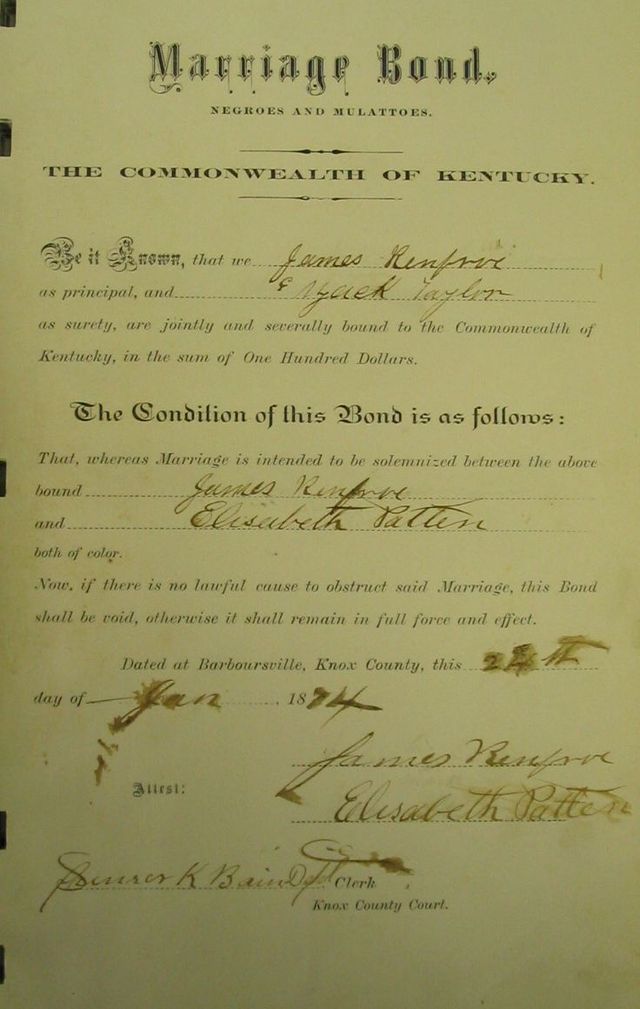 Marriage Bond.
NEGROES AND MULATTOES.
THE COMMONWEALTH OF KENTUCKY.
Be it Known, that we James Renfroe
as principal, and Taylor
as surety, are jointly and severally bound to the Commonwealth of
Kentucky, in the sum of One Hundred Dollars.
The Condition of this Bond is as follows:
That, whereas Marriage is intended to be solemnized between the above
bound James Renfroe
and Elisabeth Patten
both of color.
Now, if there is no lawful cause to obstruct said Marriage, this Bond
shall be void, otherwise it shall remain in full force and effect.
Dated at Barboursville, Knox County, this
day of Jan 1874
James Renfroe
Attest:
Elisabeth Patten
K Bain Dpt Clerk
Knox County Court.